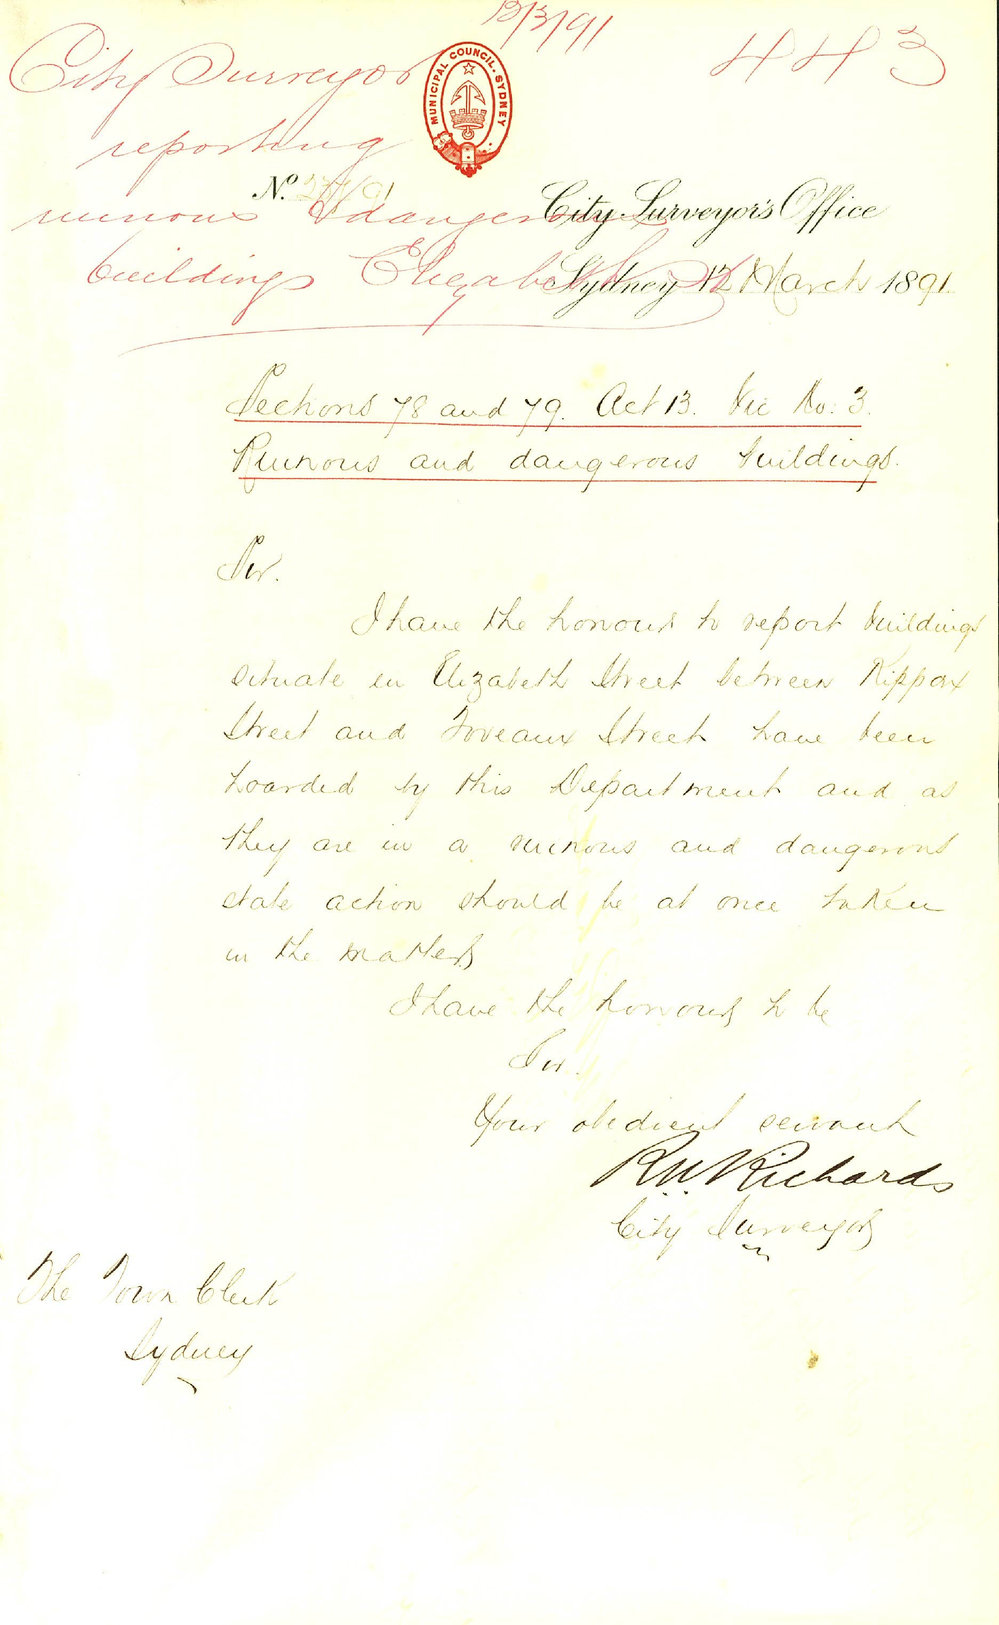 13/3/91
443
City Surveyor
reporting
ruinous & dangerous
buildings Elizabeth St
MUNICIPAL COUNCIL. SYDNEY
No.
City Surveyor's Office
Sydney 12 March 1891.
Sections 78 and 79. Act 13. Vic No: 3.
Ruinous and dangerous buildings.
Sir.
I have the honour to report buildings
situate in Elizabeth Street between Kippax
Street and Foveaux Street have been
hoarded by this Department and as
they are in a ruinous and dangerous
state action should be at once taken
in the matter
I have the honour to be
Sir.
Your obedient servant
R.W. Richards
City Surveyor
The Town Clerk
Sydney